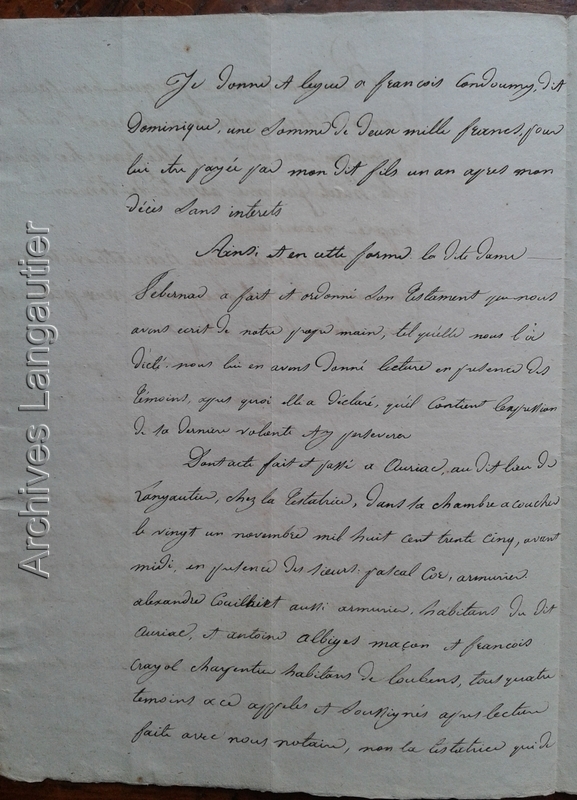 Je donne et legue a françois Condoumy, dit
Dominique, une Somme de deux mille francs, pour
lui etre payée par mon dit fils un an apres mon
décès Sans interets
Ainsi et en cette forme la dite dame
a fait et ordonné Son Testament que nous
avons ecrit de notre propre main, tel qu'elle nous l'a
dicté. nous lui en avons donné lecture en presence des
témoins, apres quoi elle a déclaré, qu'il Contient l'expression
de sa derniere volonté et y perseverer
Dont acte fait et passé a Auriac, au dit lieu de
Langautier, chez la Testatrice, dans sa chambre a coucher
le vingt un novembre mil huit cent trente cinq, avant
midi, en presence des sieurs pascal armurier
alexandre aussi armurier, habitans du dit
auriac, et antoine albiges maçon et françois
crayol charpentier habitans de loubens, tous quatre
temoins a ce appelés et Soussignés apres lecture
faite avec nous notaire, non la testatrice qui de
Archives Langautier